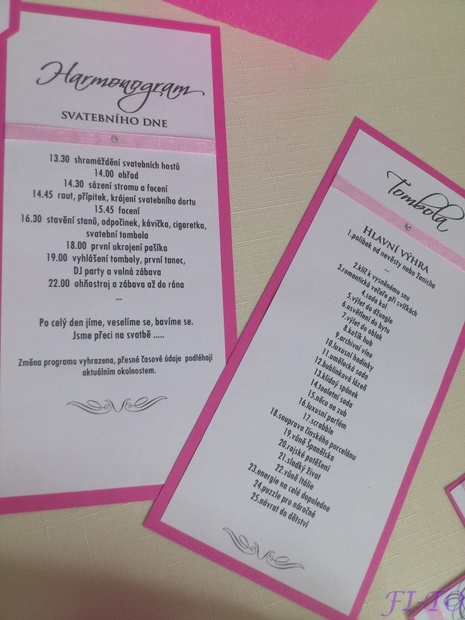 Harmonogram
SVATEBNÍHO DNE
13.30 shromáždění svatebních hostů
14.00 obřad
14.30 sázení stromu a focení
14.45 raut, přípitek, krájení svatebního dortu
15.45 focení
16.30 stavění stanů, odpočinek, kávička, cigaretka,
svatební tombola
18.00 první ukrojení pašíka
19.00 vyhlášení tomboly, první tanec,
DJ party a volná zábava
22.00 ohňostroj a zábava až do rána
...
Po celý den jíme, veselíme se, bavíme se.
Jsme přeci na svatbě .....
Změna programu vyhrazena, přesné časové údaje podléhají
aktuálním okolnostem.
Tombola
HLAVNÍ VÝHRA
1.polibek od nevěsty nebo ženicha
...
2.klíč k vysněnému snu
3.romantická večeře při svíčkách
4.sada kol
5.výlet do džungle
6.osvětlení do bytu
7.výlet do oblak
8.košík hub
9.archivní víno
10.luxusní hodinky
11.umělecká sada
12.bublinková lázeň
13.klidný spánek
14.toaletní sada
15.něco na zub
16.luxusní parfém
17.scrabble
18.souprava čínského porcelánu
19.vůně Španělska
20.rajské potěšení
21.sladký život
22.vůně Itálie
23.energie na celé dopoledne
24.puzzle pro náročné
25.návrat do dětství